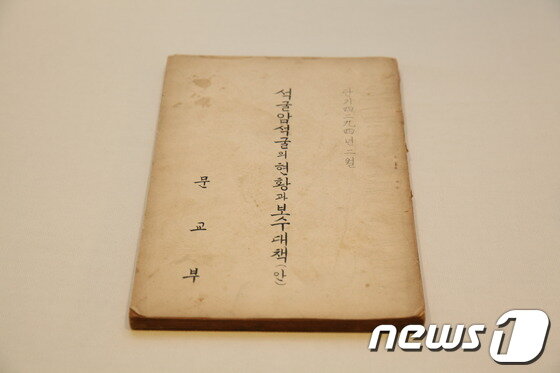 단기四二九四년二월
석굴암석굴의현황과보수대책(안)
문교부
news1